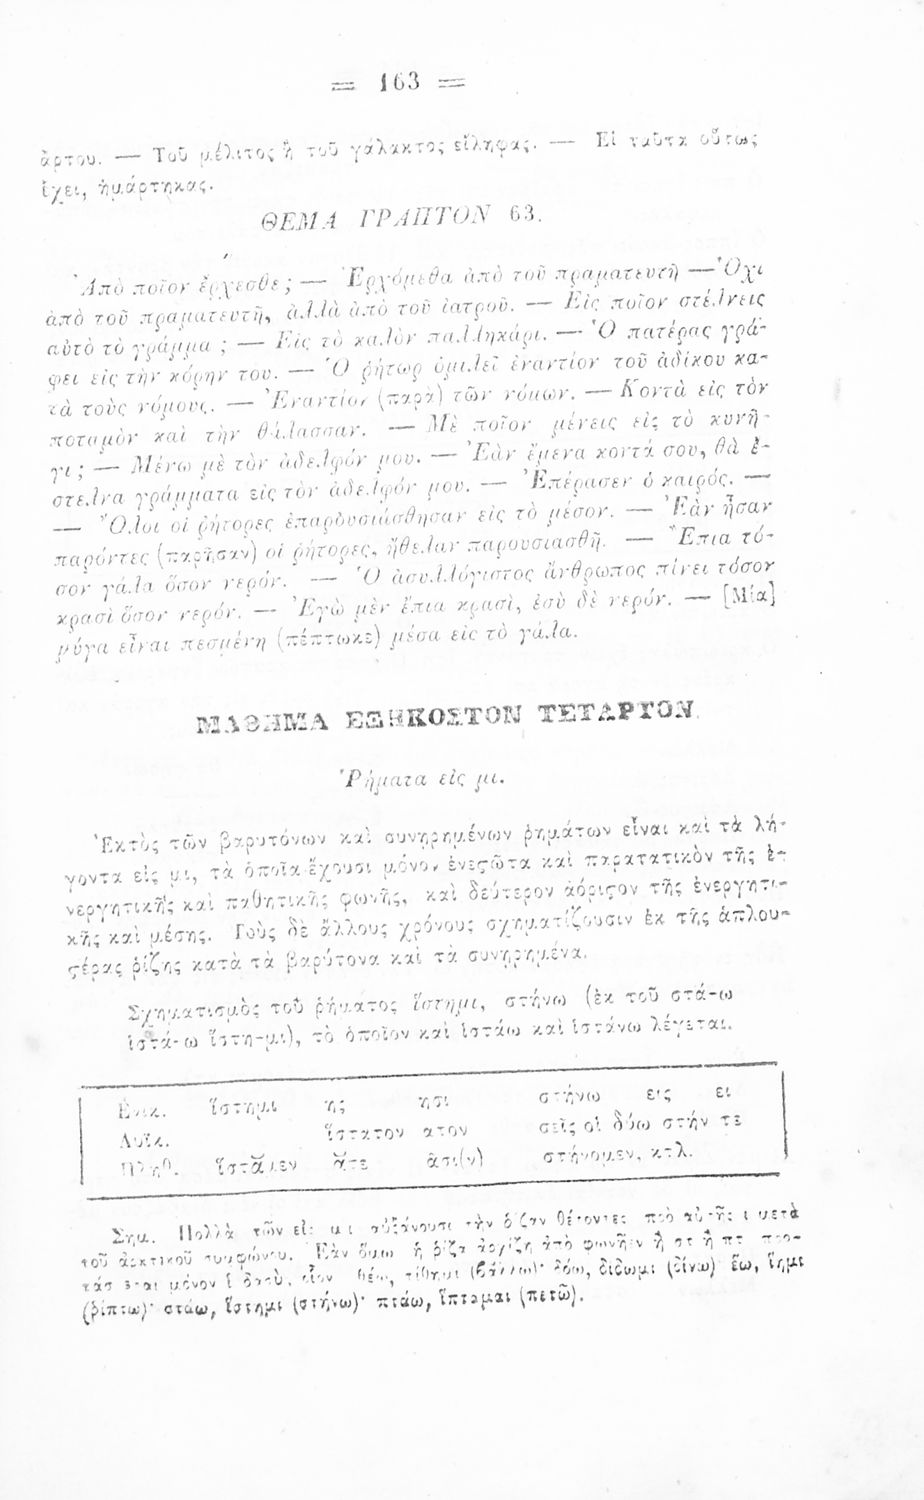 = 163 =
ἄρτου. — Τοῦ μέλιτος ἢ τοῦ γάλακτος εἴληφας. — Εἰ ταῦτα οὕτως
ἔχει, ἡμάρτηκας.
ΘΕΜΑ ΓΡΑΠΤΟΝ 63.
Ἀπὸ ποῖον ἔρχεσθε; — Ἐρχόμεθα ἀπὸ τοῦ πραματευτῆ — Ὄχι
ἀπὸ τοῦ πραματευτῆ, ἀλλὰ ἀπὸ τοῦ ἰατροῦ. — Εἰς ποῖον στέλνεις
αὐτὸ τὸ γράμμα ; — Εἰς τὸ καλὸν παλληκάρι. — Ὁ πατέρας γρά-
φει εἰς τὴν κόρην του. — Ὁ ῥήτωρ ὁμιλεῖ ἐναντίον τοῦ ἀδίκου κα-
τὰ τοὺς νόμους. — Ἐναντίον (παρὰ) τῶν νόμων. — Κοντὰ εἰς τὸν
ποταμὸν καὶ τὴν θάλασσαν. — Μὲ ποῖον μένεις εἰς τὸ κυνῆ-
γι; — Μένω μὲ τὸν ἀδελφόν μου. — Ἐὰν ἔμενα κοντά σου, θὰ ἔ-
στελνα γράμματα εἰς τὸν ἀδελφόν μου. — Ἐπέρασεν ὁ καιρός. —
— Ὅλοι οἱ ῥήτορες ἐπαρουσιάσθησαν εἰς τὸ μέσον. — Ἐὰν ἦσαν
παρόντες (παρῆσαν) οἱ ῥήτορες, ἤθελαν παρουσιασθῆ. — Ἔπια τό-
σον γάλα ὅσον νερόν. — Ὁ ἀσυλλόγιστος ἄνθρωπος πίνει τόσον
κρασὶ ὅσον νερόν. — Ἐγὼ μὲν ἔπια κρασὶ, ἐσὺ δὲ νερόν. — [Μία]
μύγα εἶναι πεσμένη (πέπτωκε) μέσα εἰς τὸ γάλα.
ΜΑΘΗΜΑ ΕΞΗΚΟΣΤΟΝ ΤΕΤΑΡΤΟΝ
Ῥήματα εἰς μι.
Ἐκτὸς τῶν βαρυτόνων καὶ συνῃρημένων ῥημάτων εἶναι καὶ τὰ λή-
γοντα εἰς μι, τὰ ὁποῖα ἔχουσι μόνον ἐνεςῶτα καὶ παρατατικὸν τῆς ἐ-
νεργητικῆς καὶ παθητικῆς φωνῆς, καὶ δεύτερον ἀόριςον τῆς ἐνεργητι-
κῆς καὶ μέσης. Τοὺς δὲ ἄλλους χρόνους σχηματίζουσιν ἐκ τῆς ἁπλου-
ςέρας ῥίζης κατὰ τὰ βαρύτονα καὶ τὰ συνῃρημένα.
Σχηματισμὸς τοῦ ῥήματος ἵστημι, στήνω (ἐκ τοῦ στά-ω
ἱστά-ω ἵστη-μι), τὸ ὁποῖον καὶ ἱστάω καὶ ἱστάνω λέγεται.
Ἑνικ. ἵστημι ης ησι στήνω εις ει
Δυϊκ. ἵστατον ατον σεῖς οἱ δύω στήν τε
Πληθ. ἵστᾰμεν ᾰτε ᾶσι(ν) στήνομεν, κτλ.
Σημ. Πολλὰ τῶν εἰς μι αὐξάνουσι τὴν ῥίζαν θέτοντες πρὸ αὐτῆς ι μετὰ
τοῦ ἀρκτικοῦ συμφώνου. Ἐὰν ὅμως ἡ ῥίζα ἀρχίζῃ ἀπὸ φωνῆεν ἢ στ ἢ πτ προ-
τάσσεται μόνον ἱ δασὺ, οἷον θέω, τίθημι (βάλλω)· δόω, δίδωμι (δίνω) ἕω, ἵημι
(ῥίπτω)· στάω, ἵστημι (στήνω)· πτάω, ἵπταμαι (πετῶ).